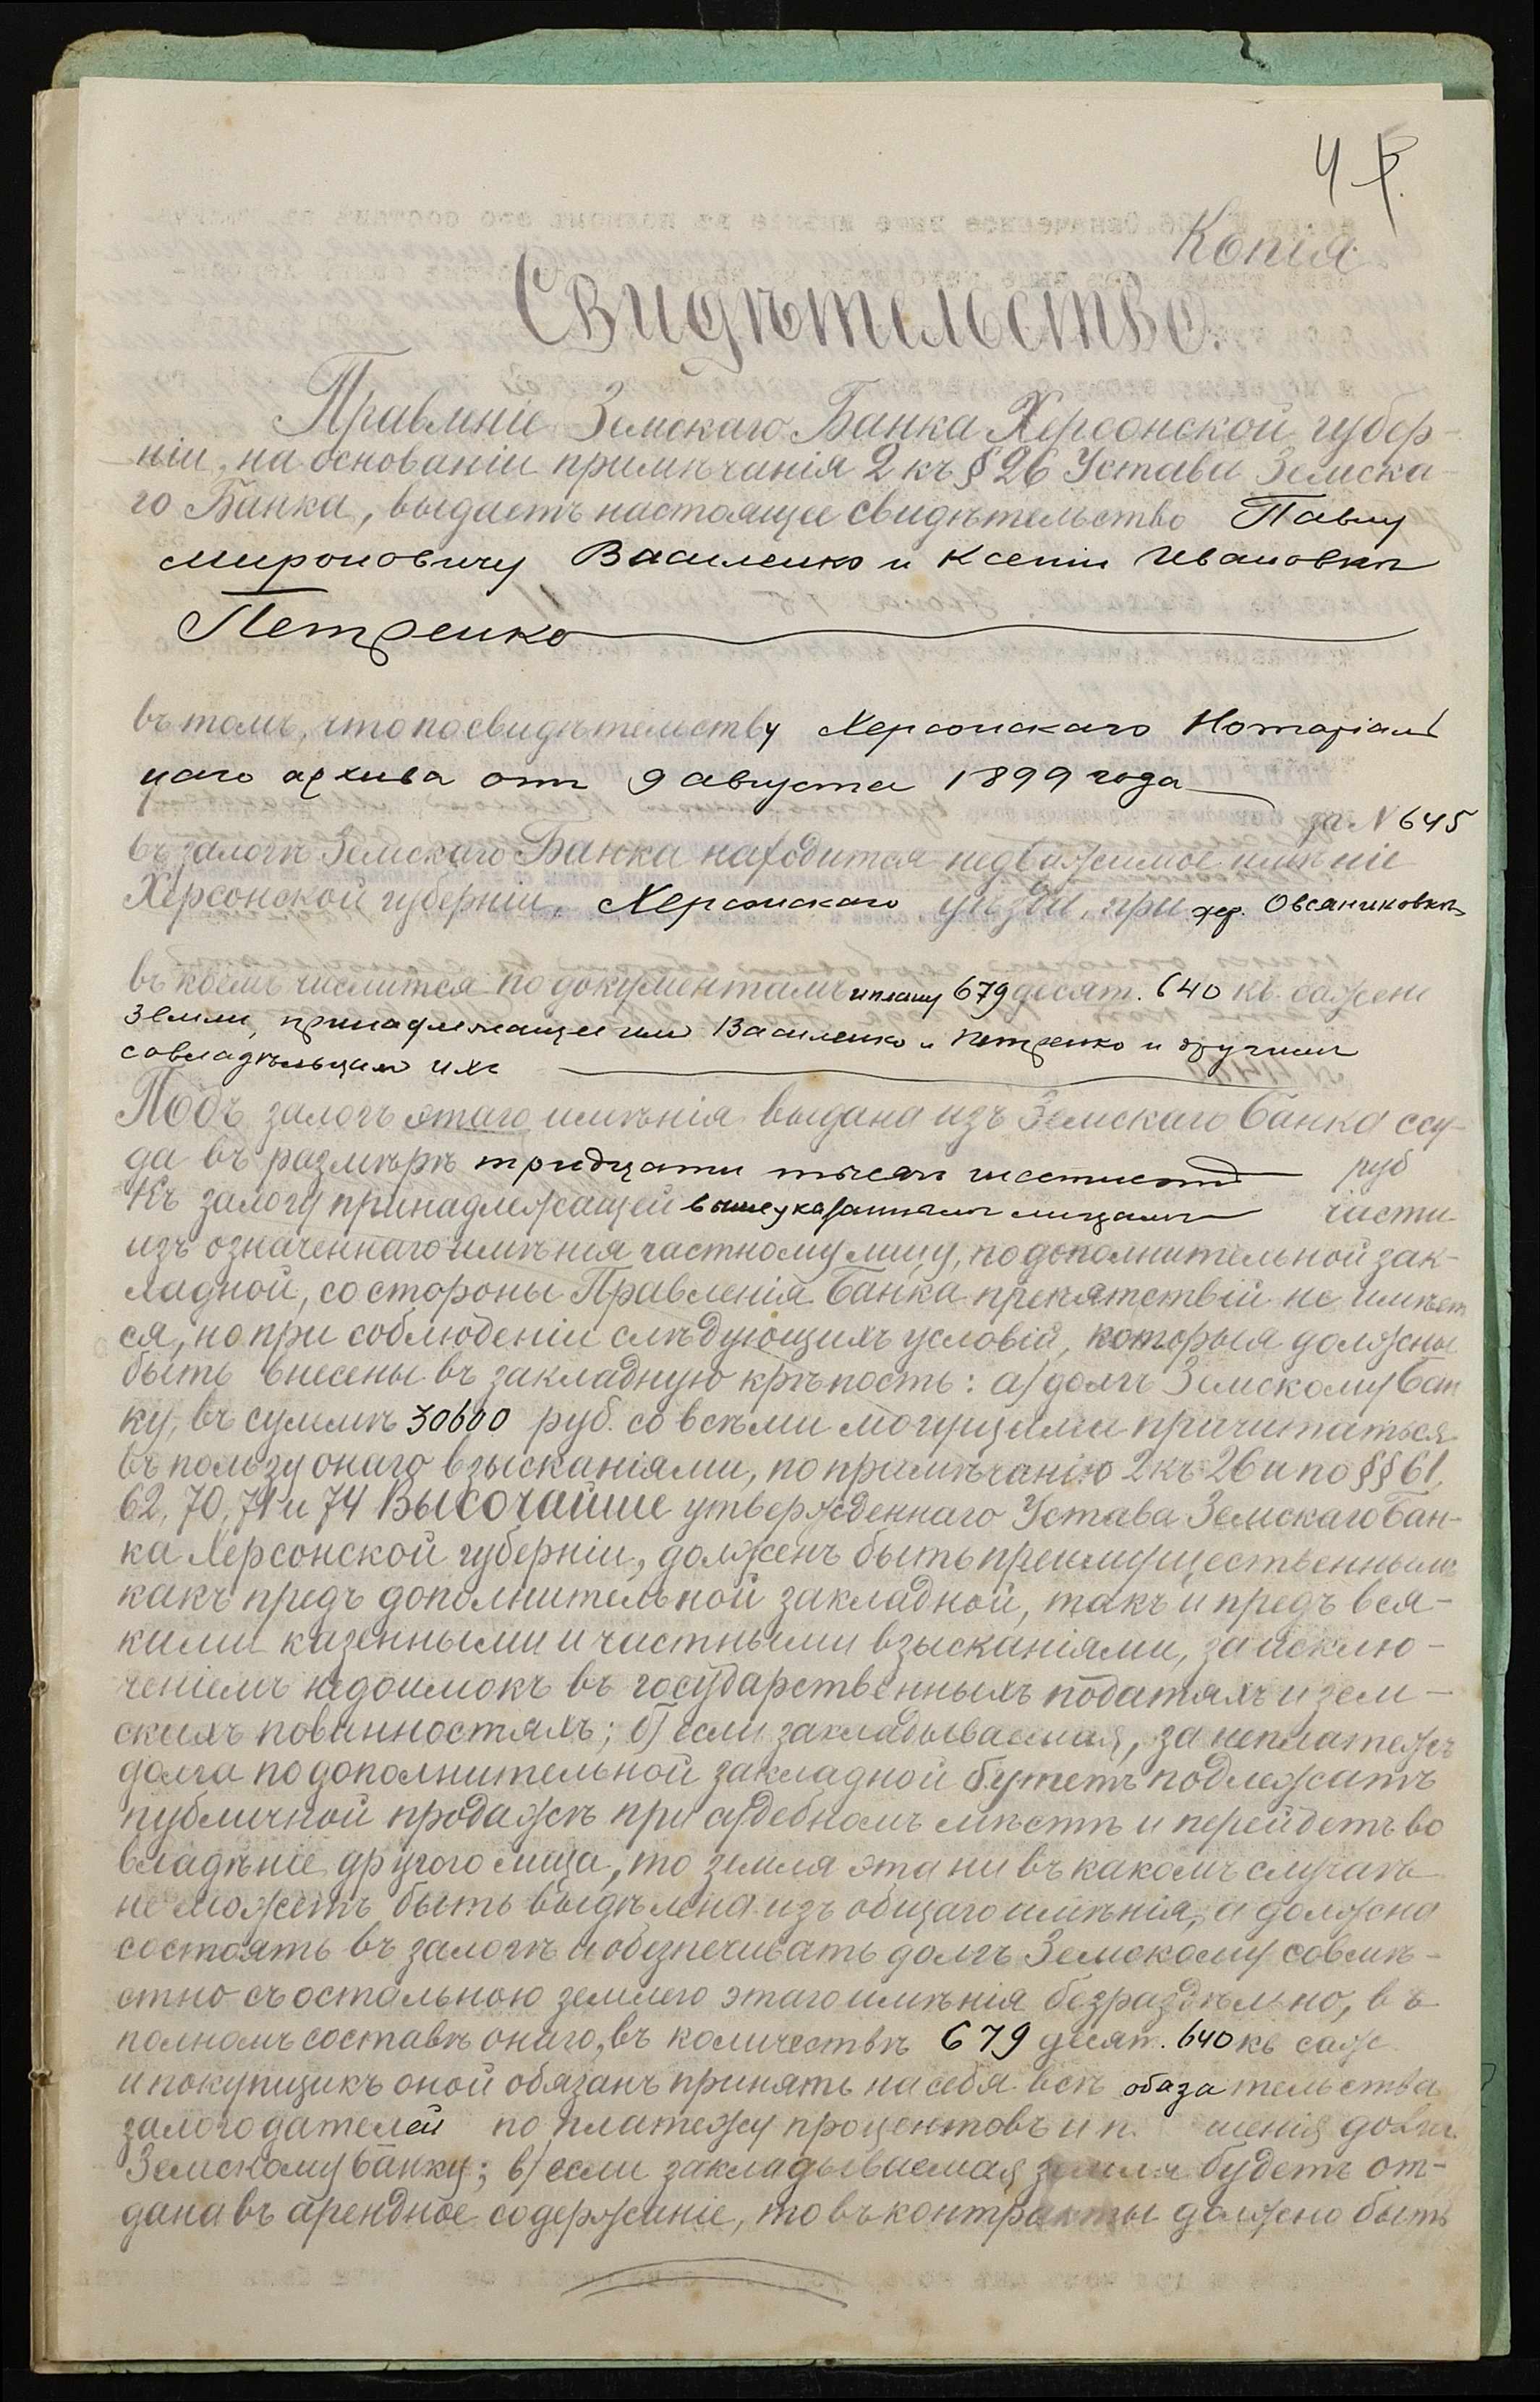 4
Копія.
Свидѣтельство.
Правленіе Земскаго Банка Херсонской губер-
ніи, на основаніи примѣчанія 2 къ § 26 Устава Земска-
го Банка, выдаетъ настоящее свидѣтельство Павлу
Мироновичу Василенко и Ксеніи Ивановнѣ
Петренко
въ томъ, что по свидѣтельству Херсонскаго Нотаріаль
наго архива отъ 9 августа 1899 года
за N 645
въ залогѣ Земскаго Банка находится недвижимое имѣніе
Херсонской губерніи, Херсонскаго уѣзда, при хут. Овсяниковкѣ
въ коемъ числится по документамъ и плану 679 десят. 640 кв. сажен
земли, принадлежащее имъ Василенко и Петренко и другимъ
совладѣльцамъ ихъ
Подъ залогъ этаго имѣнія выдана изъ Земскаго Банка ссу-
да въ размѣрѣ тридцати тысячъ шестисотъ руб
Къ залогу принадлежащей вышеуказаннымъ лицамъ части
изъ означеннаго имѣнія частному лицу, по дополнительной зак-
ладной, со стороны Правленія Банка препятствій не имѣет
ся, но при соблюденіи слѣдующихъ условій, которыя должны
быть внесены въ закладную крѣпость: а) долгъ Земскому Бан
ку, въ суммѣ 30600 руб. со всѣми могущими причитаться
въ пользу онаго взысканіями, по примѣчанію 2 къ 26 и по §§ 61,
62, 70, 71 и 74 Высочайше утвержденнаго Устава Земскаго Бан-
ка Херсонской губерніи, долженъ быть преимущественнымъ
какъ предъ дополнительной закладной, такъ и предъ вся-
кими казенными и частными взысканіями, за исклю-
ченіемъ недоимокъ въ государственныхъ податяхъ и зем-
скихъ повинностяхъ; б) если закладываемая, за неплатежъ
долга по дополнительной закладной будетъ подлежать
публичной продажѣ при судебномъ мѣстѣ и перейдетъ во
владѣніе другого лица, то земля эта ни въ какомъ случаѣ
не можетъ быть выдѣлена изъ общаго имѣнія, а должна
состоять въ залогѣ и обезпечивать долгъ Земскому совмѣ-
стно съ остальною землею этаго имѣнія безраздѣльно, въ
полномъ составѣ онаго, въ количествѣ 679 десят. 640 кв саж
и покупщикъ оной обязанъ принять на себя всѣ обязательства
залогодателей по платежу процентовъ и п шенія долга
Земскому Банку; в) если закладываемая земля будетъ от-
дана въ арендное содержаніе, то въ контракты должно быть